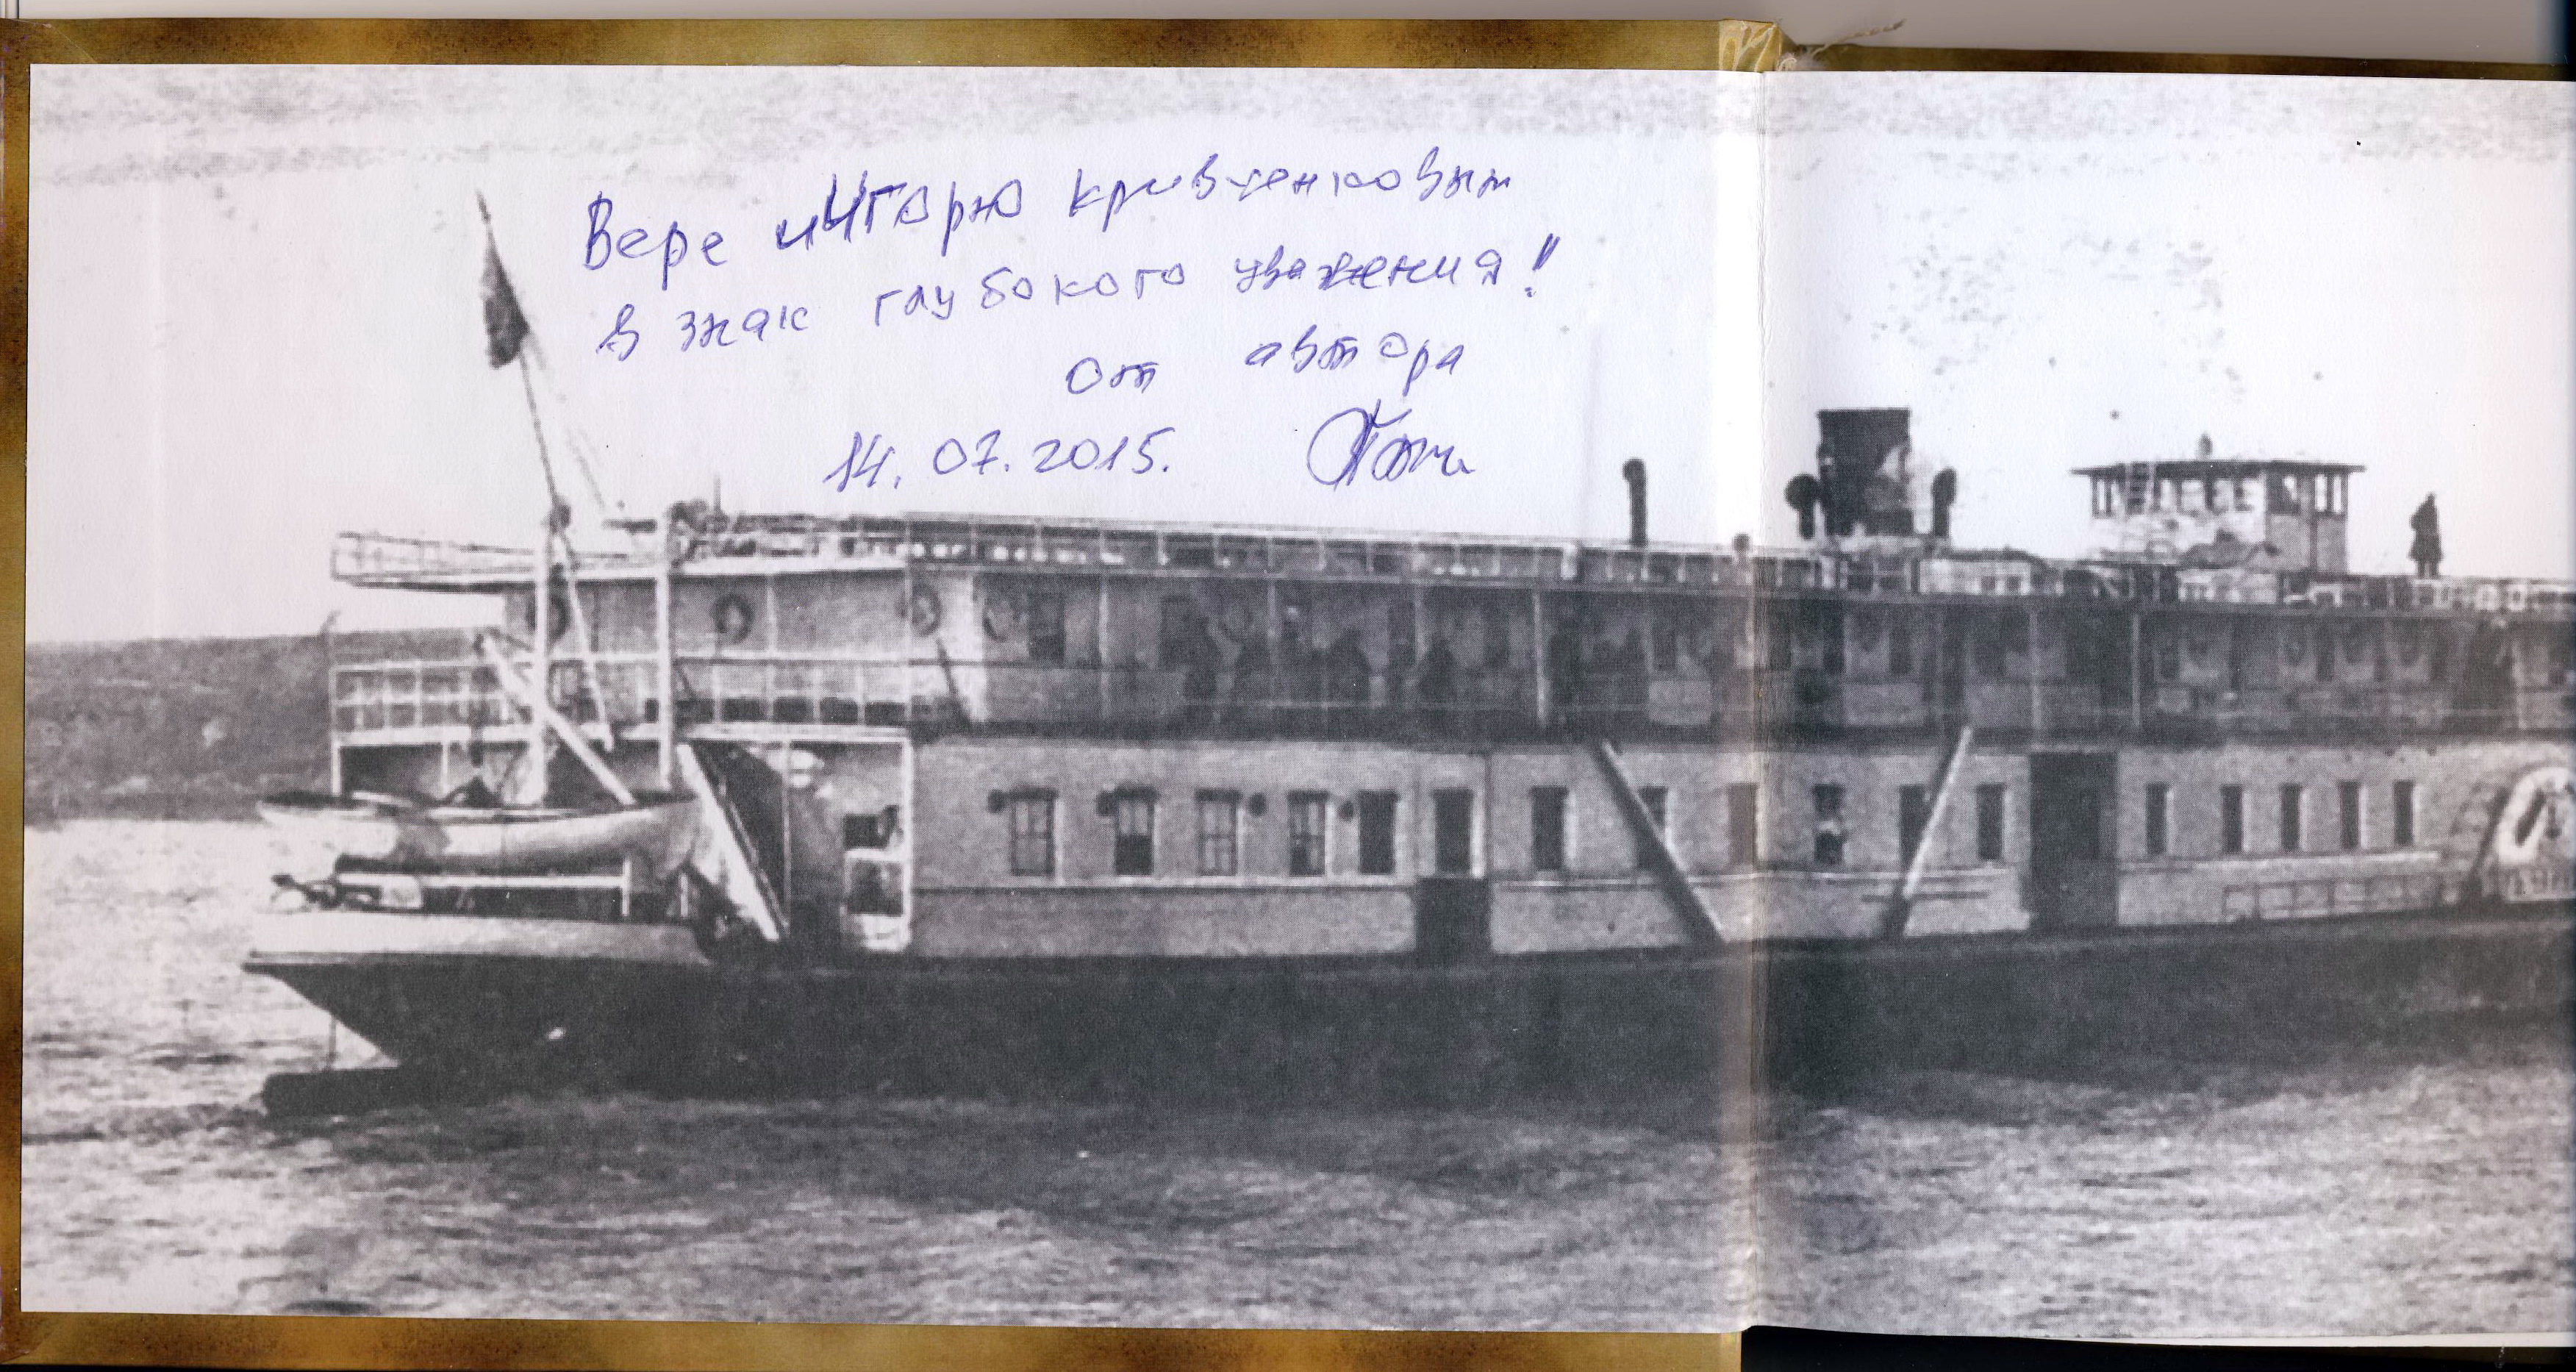 Вере и Игорю Кривченковым
в знак глубокого уважения!
от автора
14.07.2015.